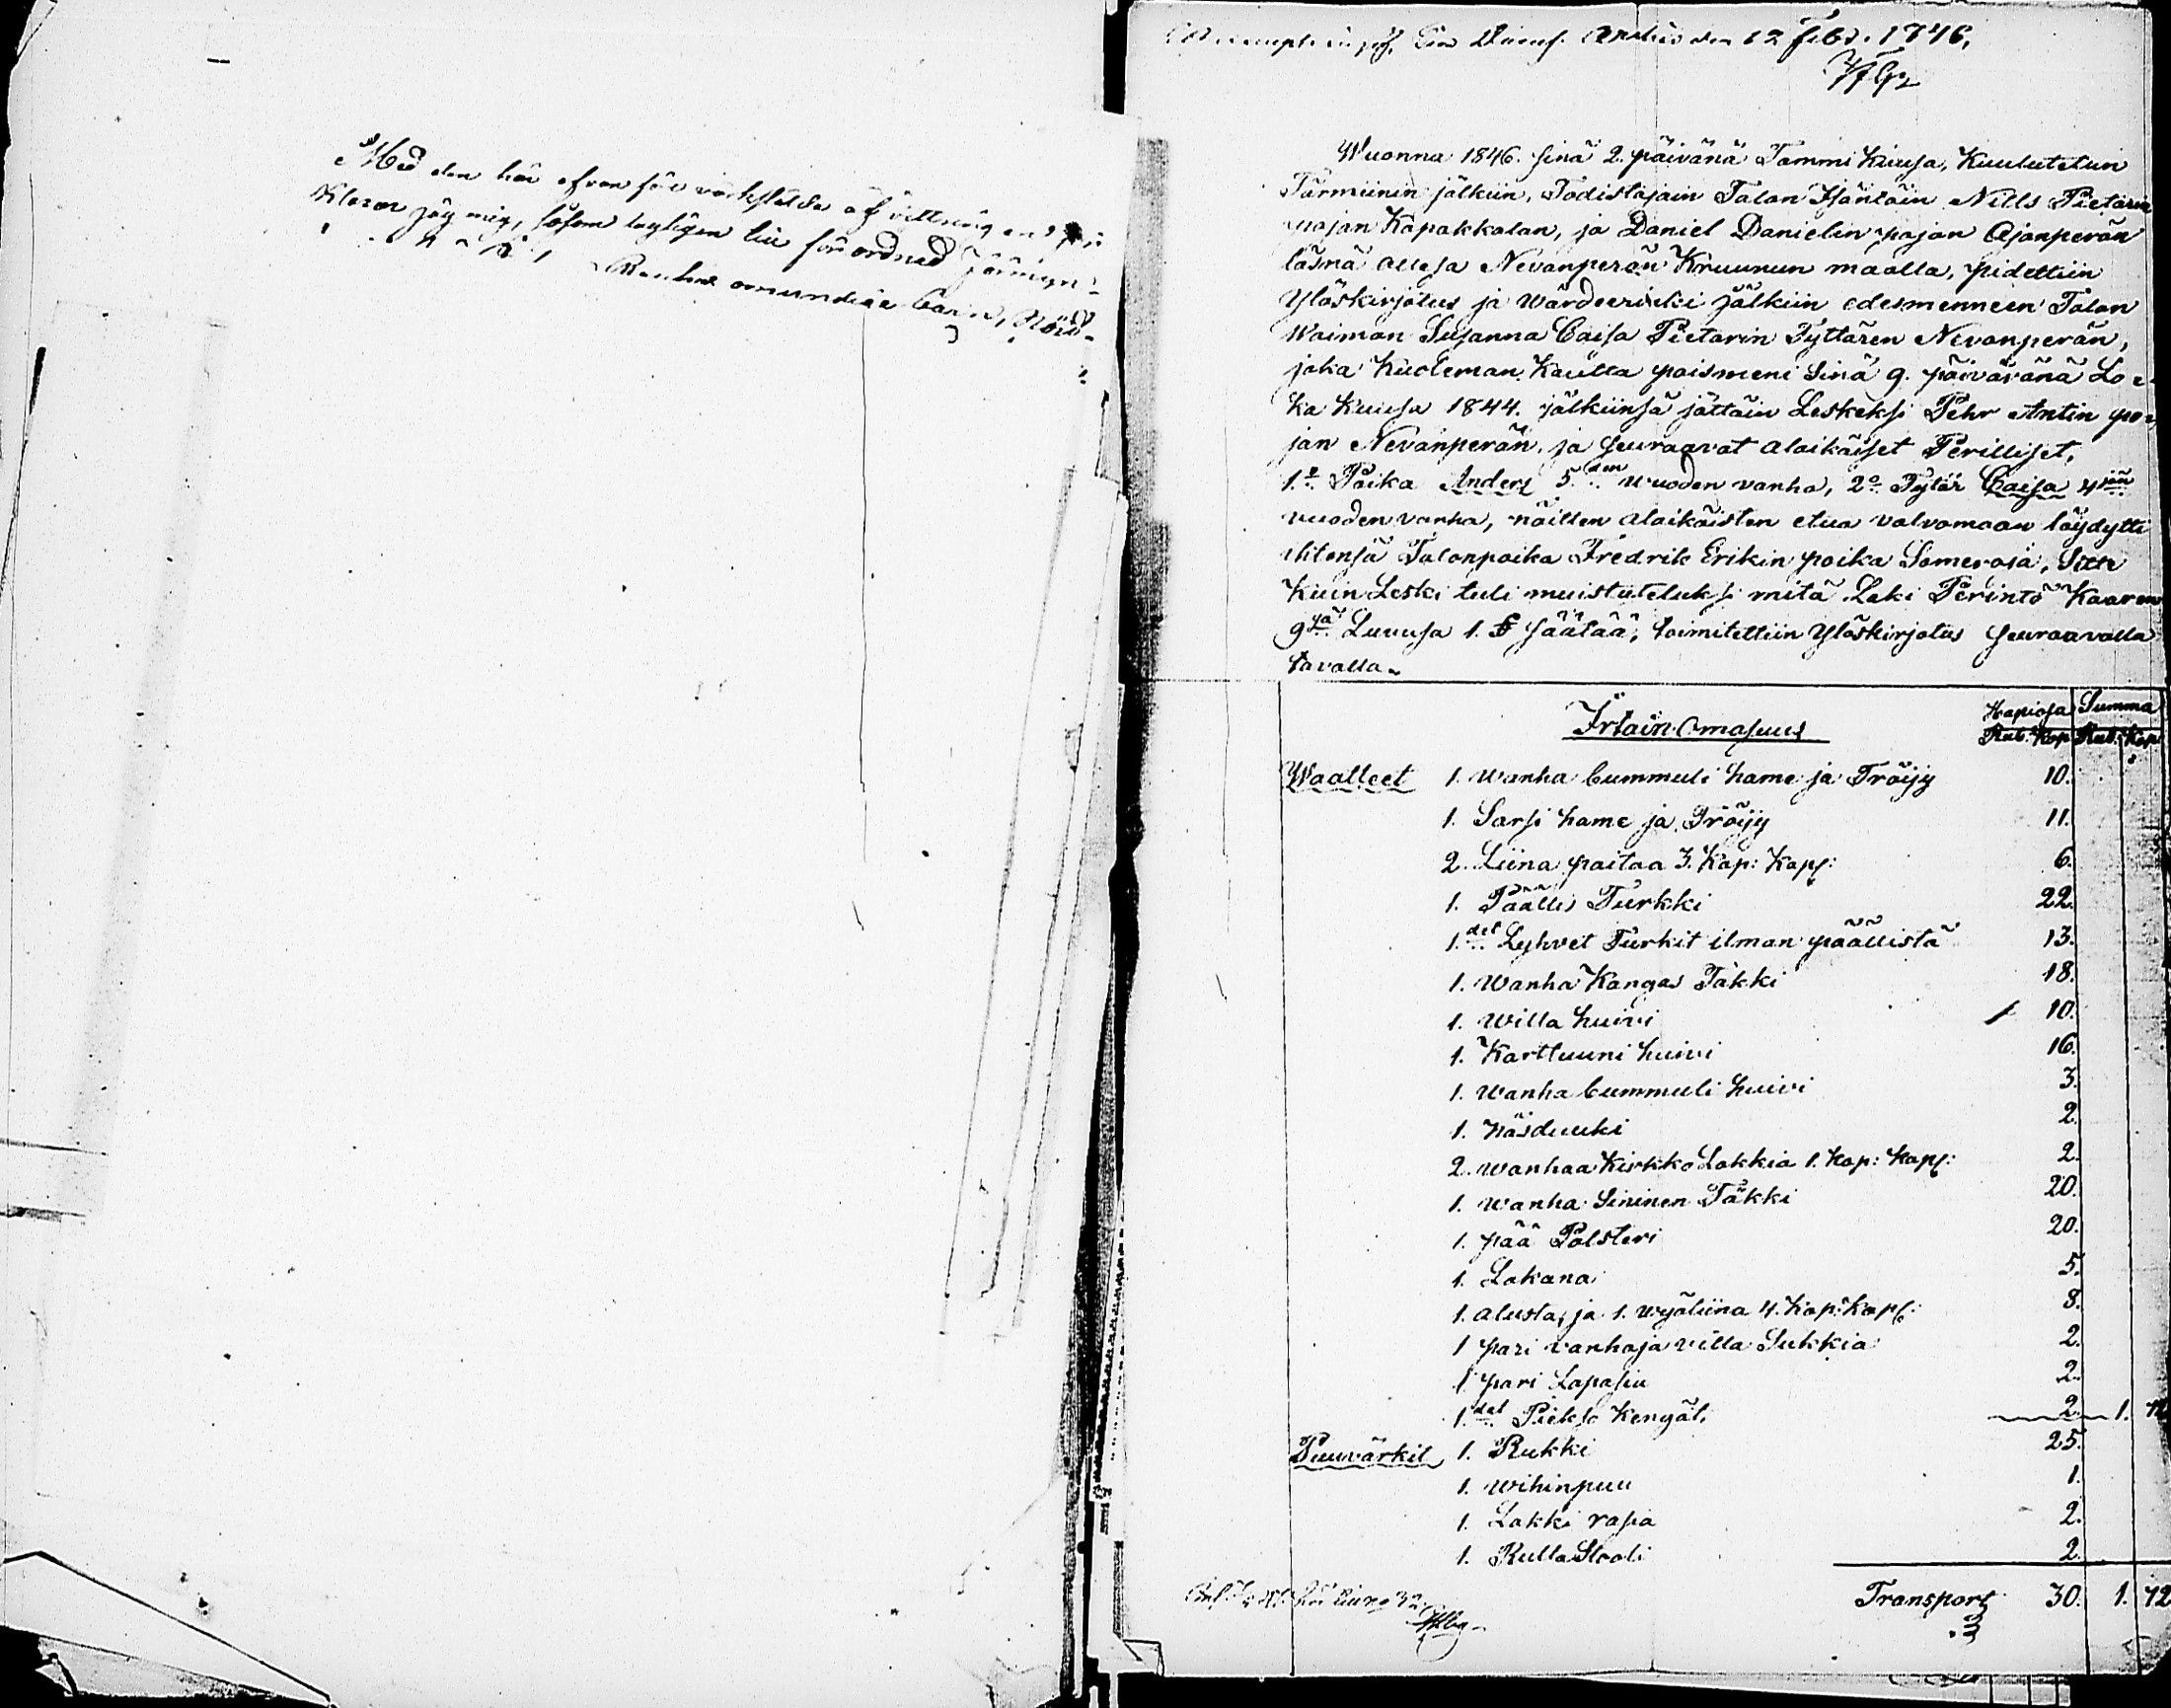 Med den här ofvan för verkstälda
Klarar jag mig, såsom lagligen till förordnad Förmyn-
den 12 Febr. 1846,
Wuonna 1846. sinä 2. päivänä Tammi Kuusa, Kuulutetun
Tärmiinin jälkiin, Todistajain Talon Isäntäin Nills Pietarin
pojan Kapakkalan, ja Daniel Danielin pojan Ajanperän
läsnä ollesa Nevanperän Kruunun maalla, pidettiin
Ylöskirjotus ja Wärdeerinki jälkiin edesmenneen Talon
Waiman Susanna Caisa Pietarin Tyttären Nevanperän,
joka Kuoleman Kautta poismeni Sinä 9. päivävänä Lo-
ka Kuusa 1844. jälkiinsä jättäin Leskeksi Pehr Antin po-
jan Nevanperän, ja seuraavat alaikäiset Perilliset,
1.o Poika Anders 5.den wuoden vanha, 2o Tytär Caisa 4jän
vuoden vanha, näitten alaikäisten etua valvomaan löydytti
ittensä Talonpoika Fredrik Erikin poika Someroja, Sitte
Kuin Leski tuli muistuteluksi mitä Laki Perintö Kaaren
9jä Luvusa 1. § säätää, toimitettiin Ylöskirjotus seuraavalla
tavalla.
Irtain Omasuus Hopiasa Summa
Rub. Kop Rub. Kop
Waatteet 1. Wanha Cummuli hame ja Tröijy 10.
1. Sarsi hame ja Tröijy 11.
2. Liina paitaa 3. Kop: Kapp: 6.
1. Päällis Turkki 22.
1.del Lyhvet Turkit ilman päällistä 13.
1. Wanha Kangas Täkki 18.
1. Willa huivi 10.
1. Karttuuni huivi 16.
1. Wanha Cummuli huivi 3.
1. Näsduuki 2.
2. Wanhaa Kirkko Lakkia 1. Kop: Kapp: 2.
1. Wanha Sininen Täkki 20.
1. pää Polsteri 20.
1. Lakana 5.
1. Alusta, ja 1. Wyöliina 4. Kop: Kapp: 8.
1 pari vanhoja villa Sukkia 2.
1 pari Lapasia 2.
1.del Piekso Kengät 2. 1. 72
Puuvärkit 1. Rukki 25.
1. Wihinpuu 1.
1. Lakki rasia 2.
1. Rulla Stooli 2.
Transport 30. 1. 72